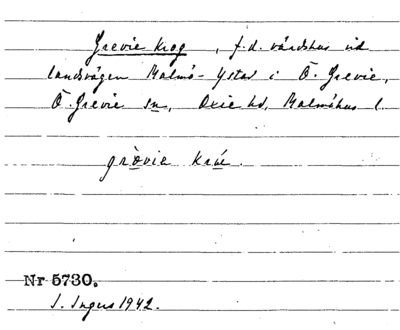 Grevie krog, f.d. värdshus vid
landsvägen Malmö-Ystad i Ö. Grevie,
Ö. Grevie sn, Oxie hd, Malmöhus l.
gròvie krú.
Nr 5730.
I. Ingers 1942.